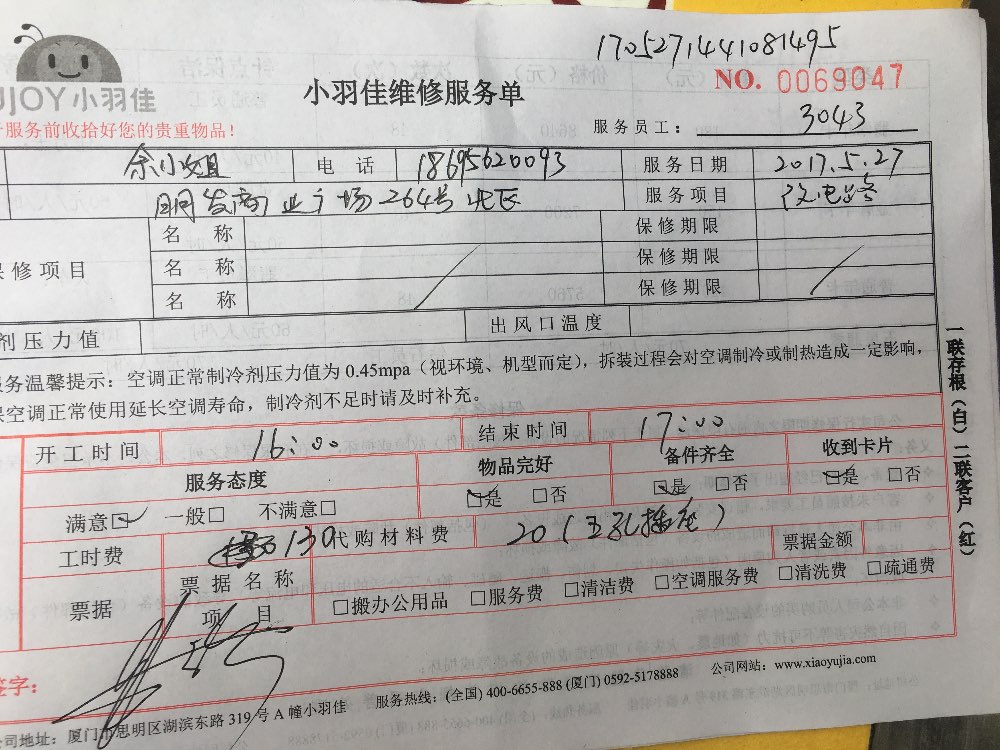 1705271441081495
UJOY小羽佳
小羽佳维修服务单
NO. 0069047
服务前收拾好您的贵重物品!
服务员工: 3043
余小姐 电话 18695620093 服务日期 2017.5.27
明发商业广场264号 服务项目 改电路
保修项目
名称 保修期限
名称 保修期限
名称 保修期限
剂压力值 出风口温度
服务温馨提示:空调正常制冷剂压力值为 0.45mpa(视环境、机型而定),拆装过程会对空调制冷或制热造成一定影响,
保空调正常使用延长空调寿命,制冷剂不足时请及时补充。
开工时间 16:00 结束时间 17:00
服务态度 物品完好 备件齐全 收到卡片
满意☑ 一般□ 不满意□ ☑是 □否 ☑是 □否 ☑是 □否
工时费 130 代购材料费 20(五孔插座) 票据金额
票据 票据名称
项目 □搬办公用品 □服务费 □清洁费 □空调服务费 □清洗费 □疏通费
签字:
公司地址:厦门市思明区湖滨东路 319 号 A 幢小羽佳 服务热线:(全国) 400-6655-888 (厦门) 0592-5178888 公司网站:www.xiaoyujia.com
一联存根(白)二联客户(红)